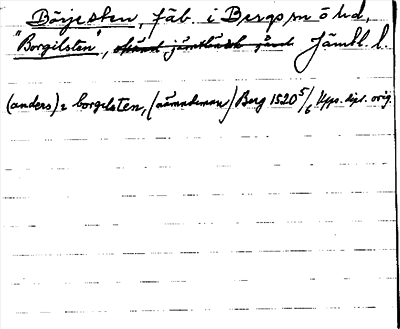 Börjesten, fäb. i Bergs sn o hd,
"Borgilsten", okänd jämtländsk gård Jämtl. l.
(anders) i borgilsten, (nämndeman) Berg 1520 5/6 Upps. dipl. orig.